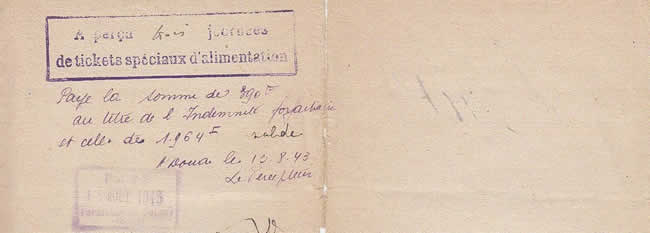 A perçu trois journées
de tickets spéciaux d'alimentation
Payé la somme de 390 F
au titre de l'Indemnité forfaitaire
et celle de 1.964 F solde
A Douai le 13.8.43
Le Percepteur
AOUT 1943